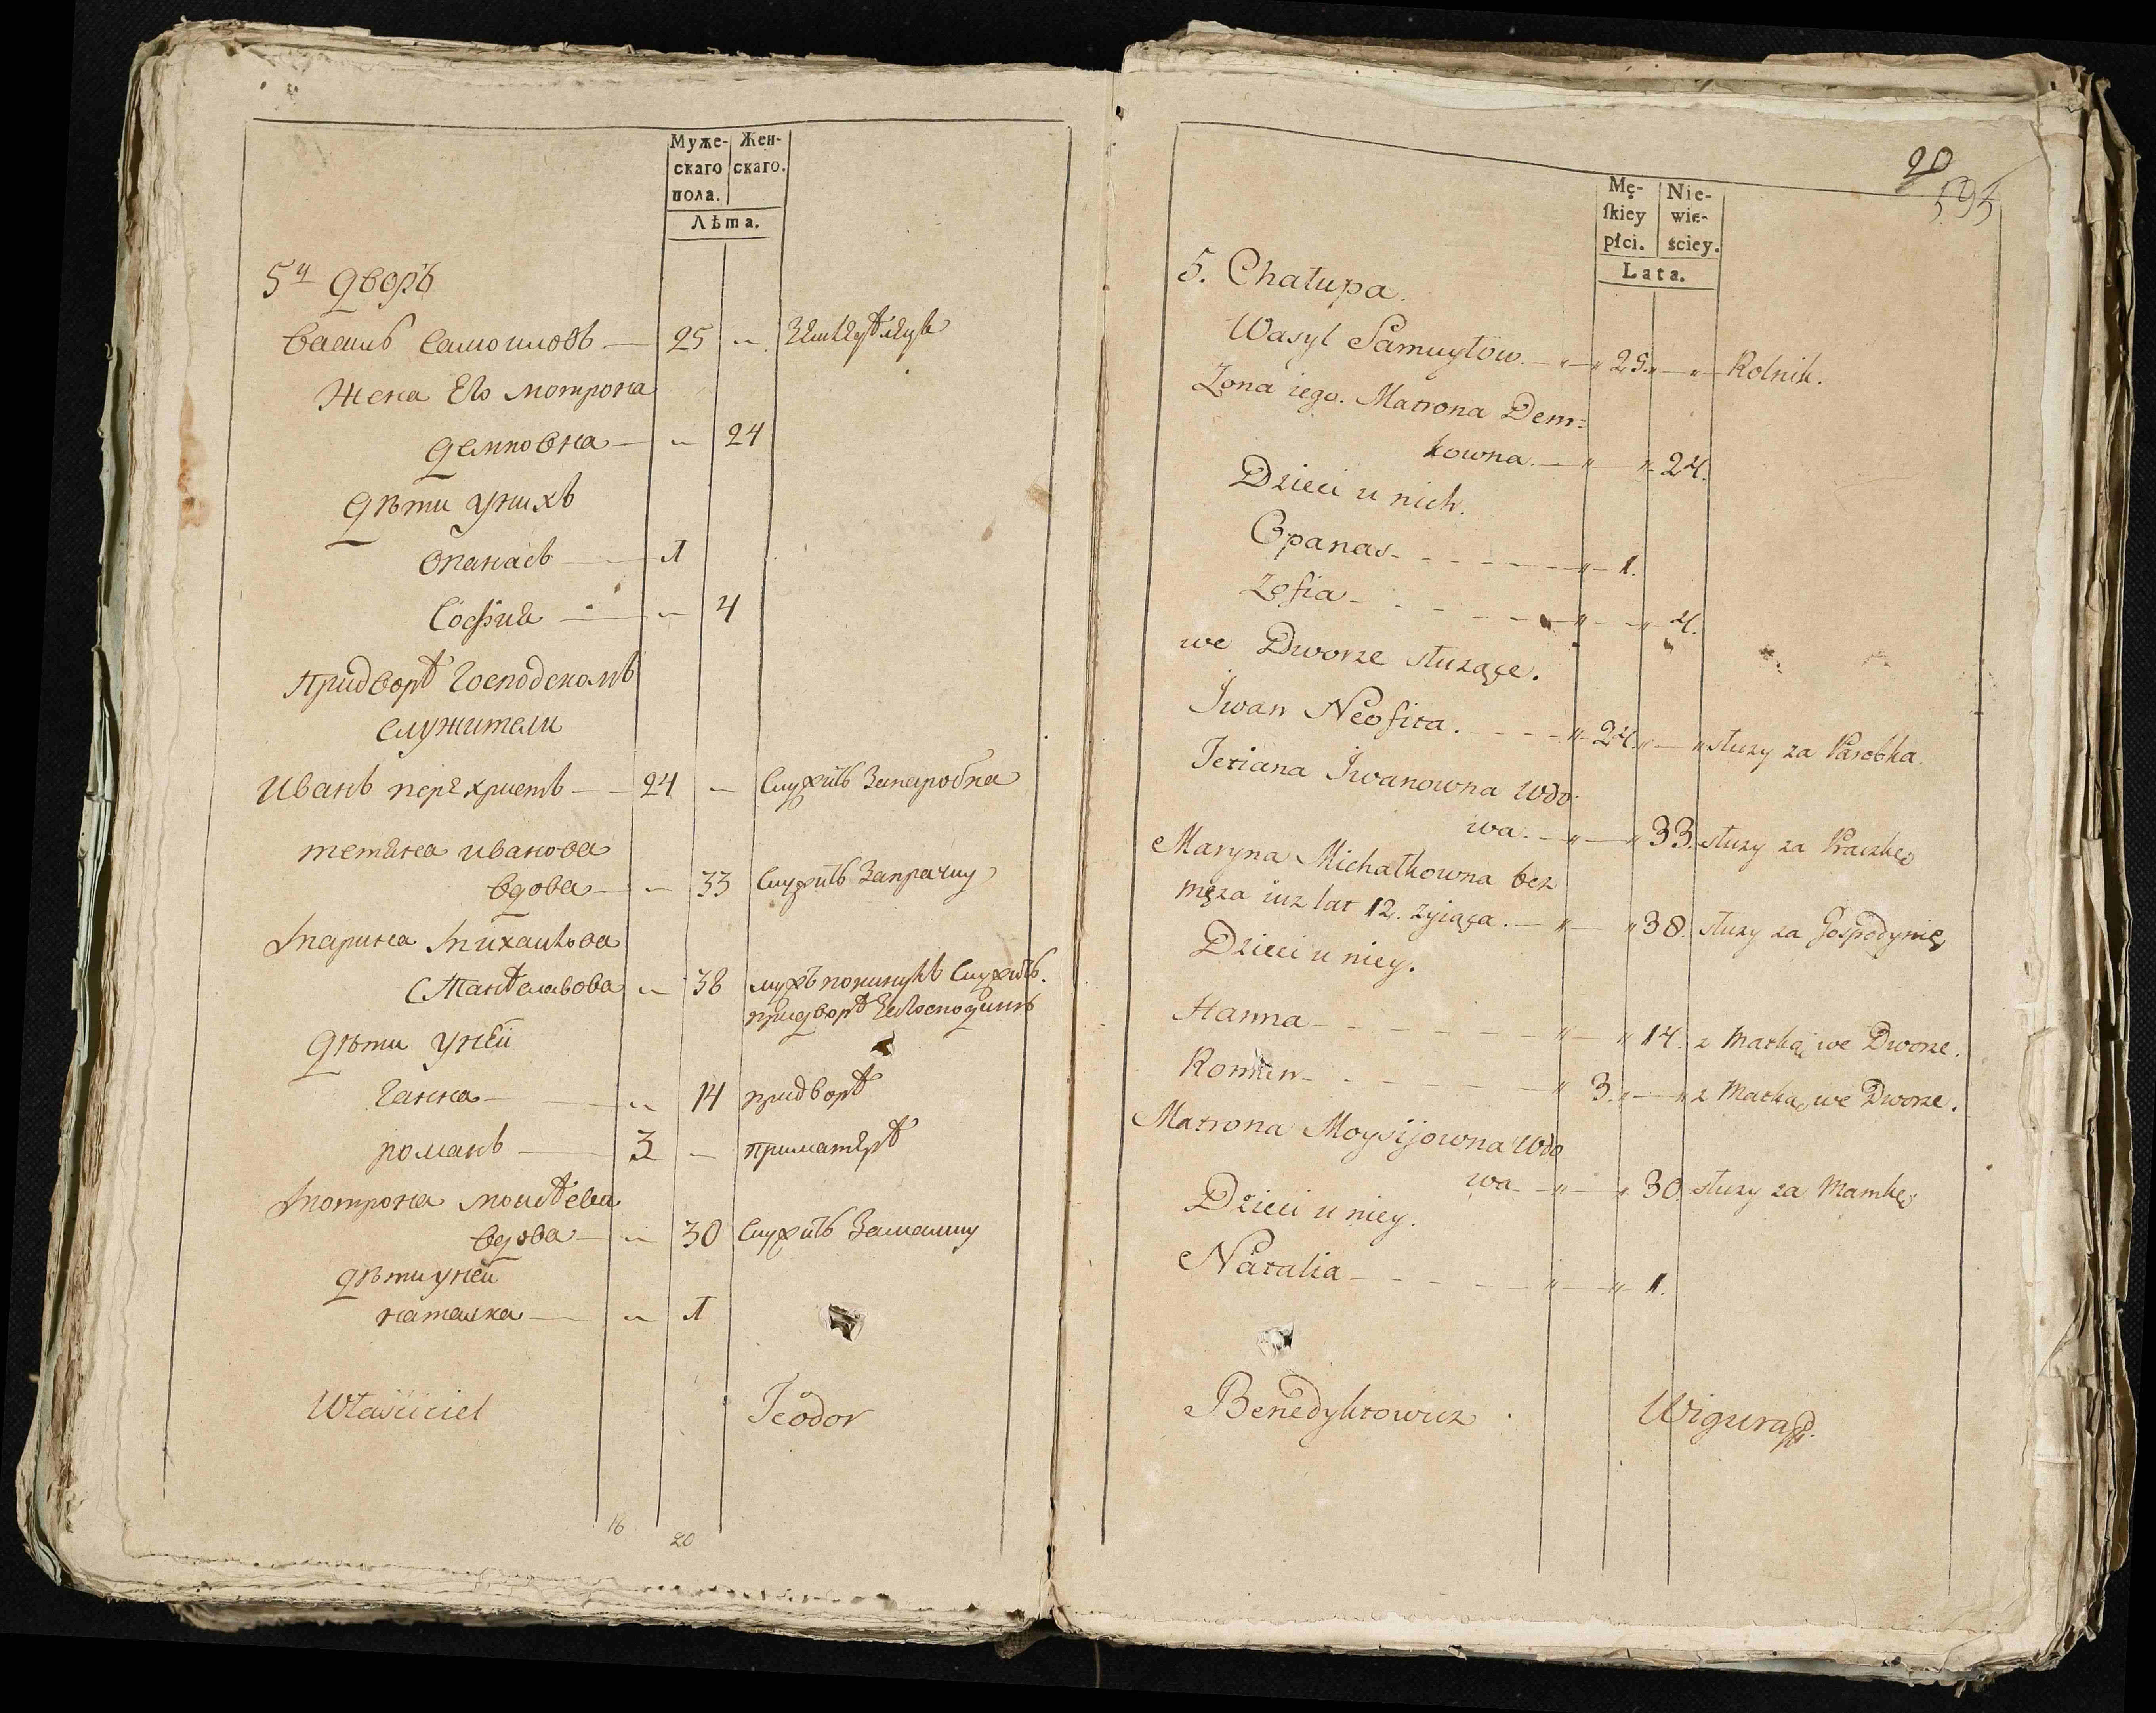 Муже-
скаго
пола.
Жен-
скаго.
Лѣта.
5й дворъ
Василь Самойловъ — 25 „
Жена Его мотрона
демковна — „ 24
дѣти унихъ
опанасъ — 1
София — „ 4
придворѣ Господскомъ
служители
Иванъ перехристъ — 24 — служитъ Запаробка
тетяна иванова
вдова — „ 33 служитъ Запрачку
марина михалкова
„ 38 мужъ покинулъ служитъ
придворѣ
дѣти уней
Ганна — „ 14 придворѣ
романъ — 3 — приматерѣ
мотрона моисѣева
вдова — „ 30 служитъ Замамку
дѣти уней
наталка — „ 1
Właściciel Teodor
16 20
20
595
Mę-
ſkiey
płci.
Nie-
wie-
ściey.
Lata.
5. Chałupa.
Wasyl Samuyłow. — „ — „ 25. „ — „ — Rolnik.
Zona iego. Matrona Dem=
kowna. — „ — „ 24.
Dzieci u nich.
Opanas - - - - „ — 1.
Zofia - - - - „ — „ 4.
we Dworze służące.
Iwan Neofita. - - - „ 24. „ — „ służy za Parobka.
Tetiana Iwanowna Wdo-
wa. — „ — „ 33. służy za Praczkę
Maryna Michałkowna bez
męża iuz lat 12. żyiąca. — „ — „ 38. służy za Gospodynię
Dzieci u niey.
Hanna - - - - „ — „ 14. z Matką we Dworze.
Roman - - - - „ 3. „ — „ z Matką we Dworze.
Matrona Moysijowna Wdo
wa — „ — „ 30. służy za Mamkę
Dzieci u niey.
Natalia - - - - „ — „ 1.
Benedyktowicz Wigura